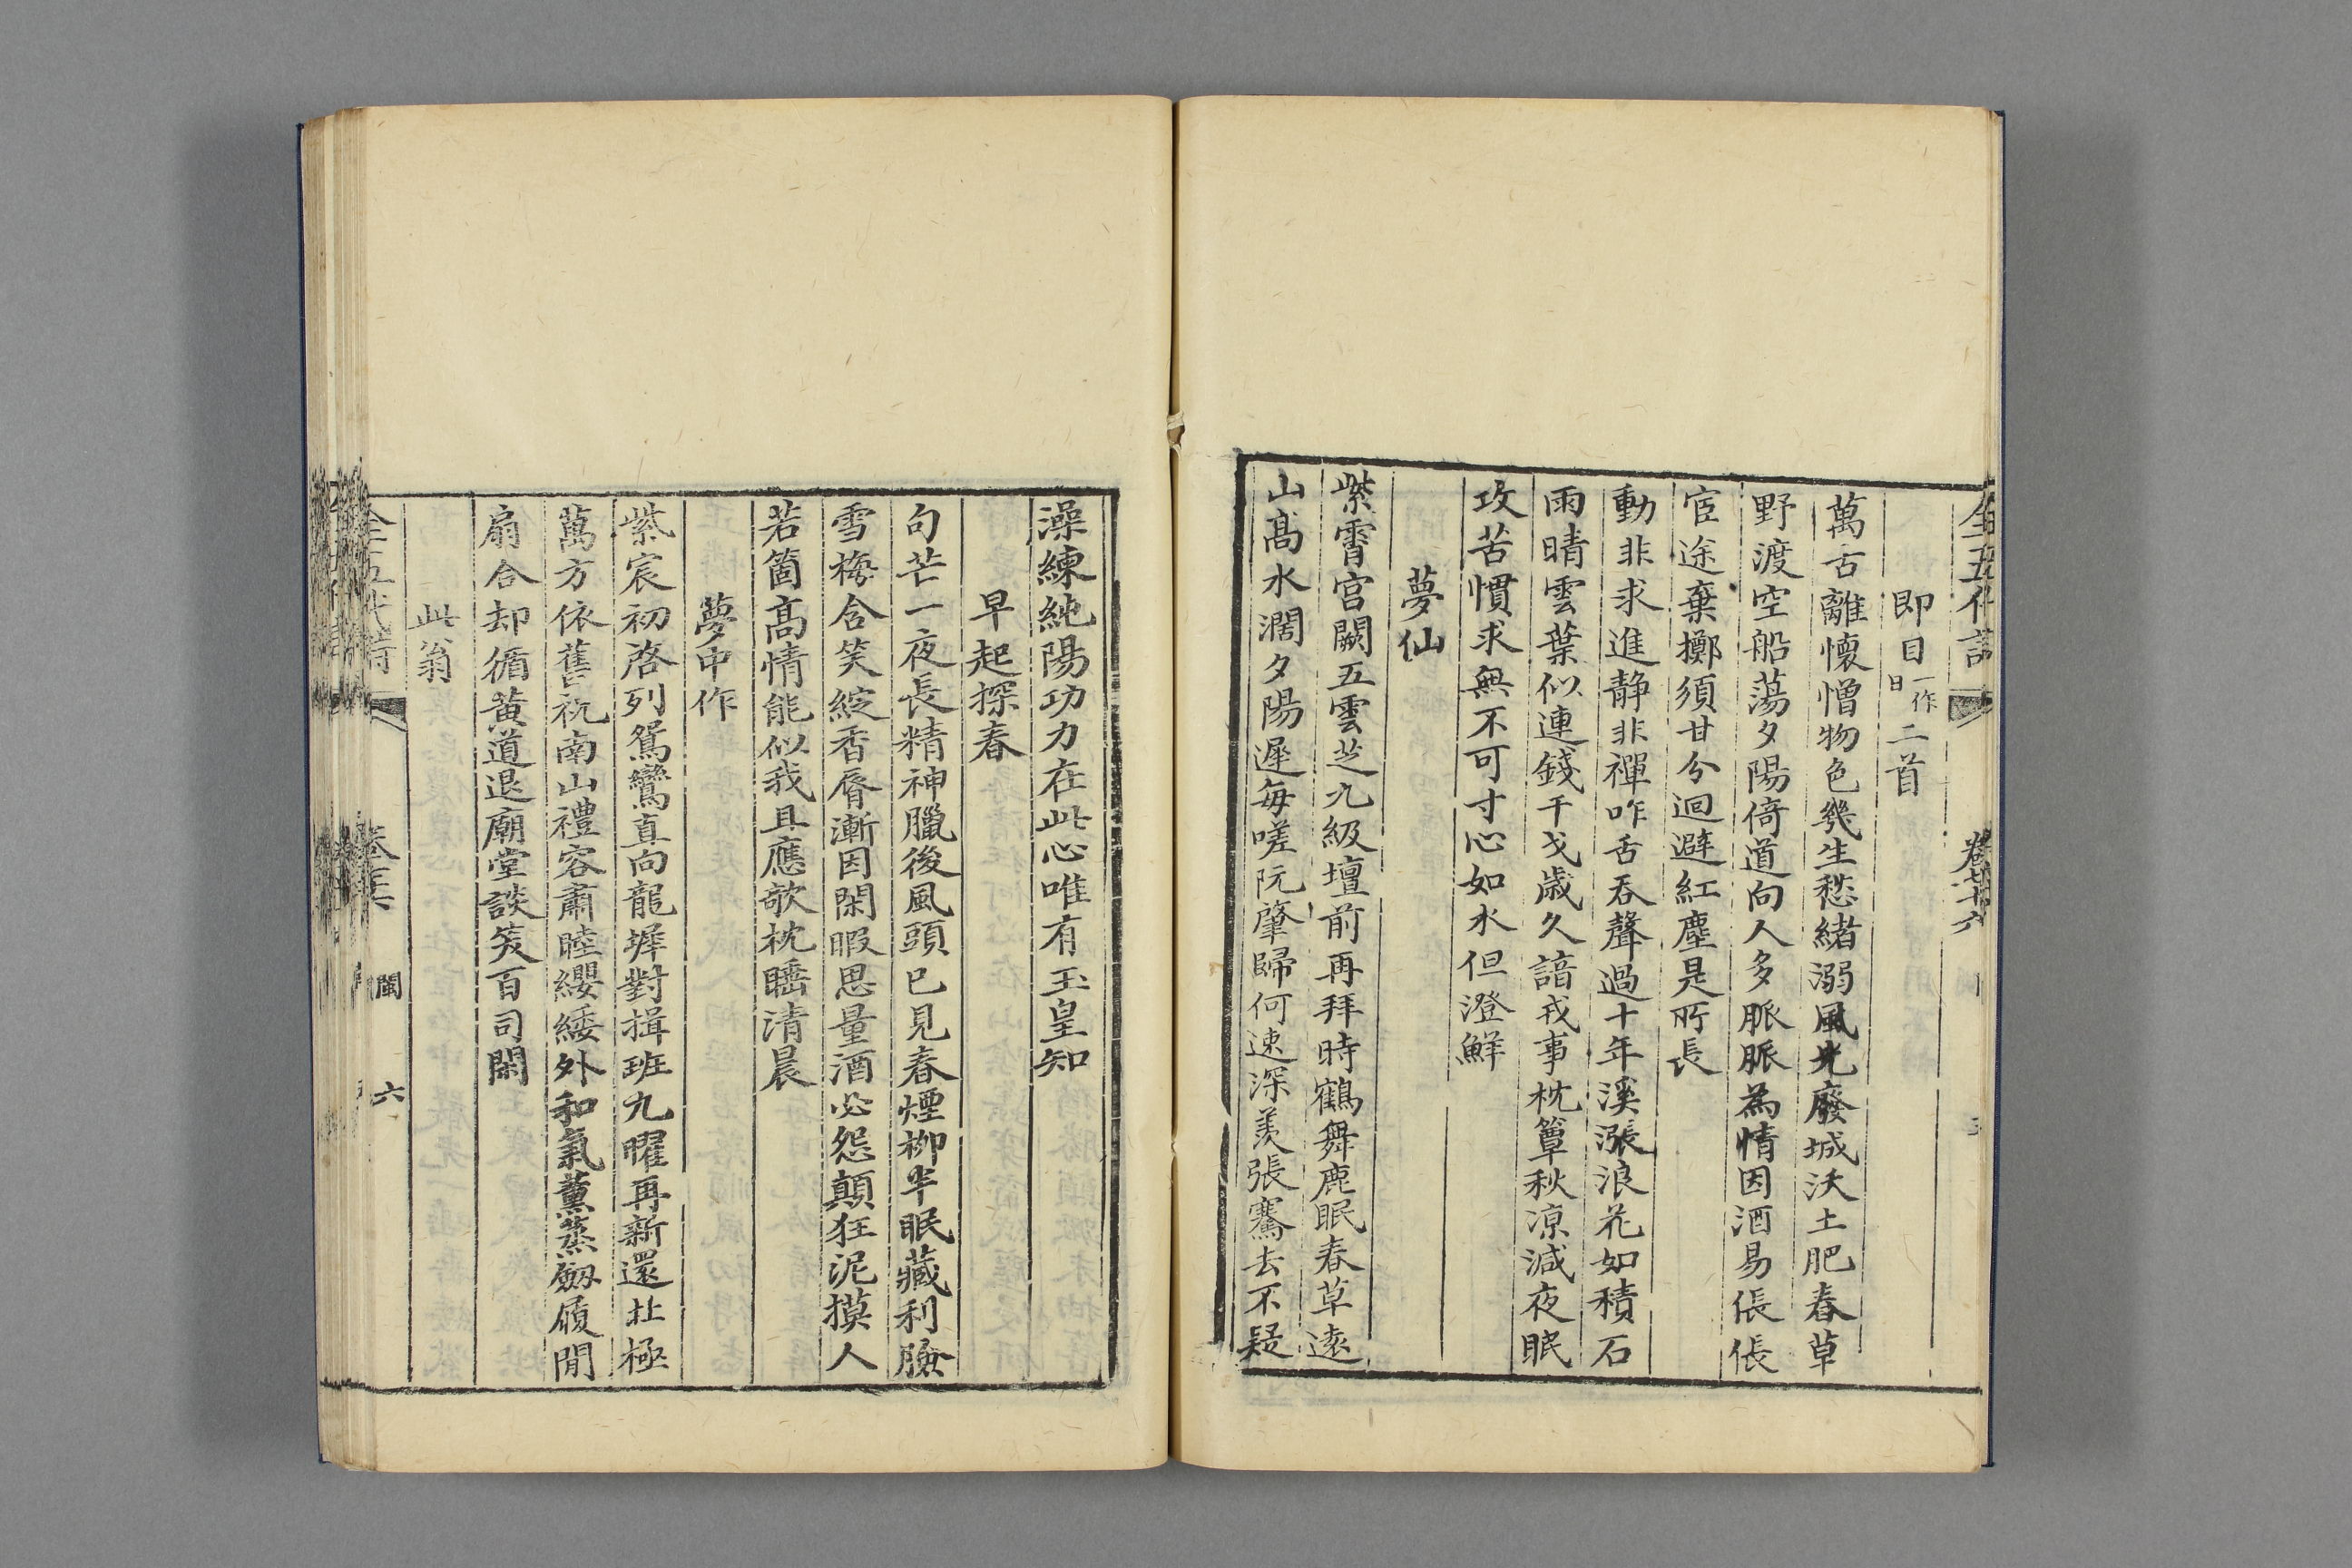 全五代詩
卷七十六
即目一作日二首
萬古離懷憎物色幾生愁緒溺風光廢城沃土肥春草
野渡空船蕩夕陽倚道向人多脈脈為情因酒易倀倀
宦途棄擲須甘分迴避紅塵是所長
動非求進静非禪咋舌吞聲過十年溪漲浪花如積石
雨晴雲葉似連錢干戈歲久諳戎事枕簟秋涼減夜眠
攻苦慣求無不可寸心如水但澄鮮
夢仙
紫霄宮闕五雲芝九級壇前再拜時鶴舞鹿眠春草遠
山高水濶夕陽遲每嗟阮肇歸何速深羨張騫去不疑
澡練純陽功力在此心唯有玉皇知
早起探春
句芒一夜長精神臘後風頭已見春煙柳半眠藏利臉
雪梅含笑綻香脣漸因閑暇思量酒必怨顛狂泥摸人
若箇高情能似我且應欹枕睡清晨
夢中作
紫宸初啓列鴛鸞直向龍墀對揖班九曜再新還北極
萬方依舊祝南山禮容肅睦纓緌外和氣薰蒸劒履閒
扇合却循黃道退廟堂談笑百司閑
此翁
閩
六